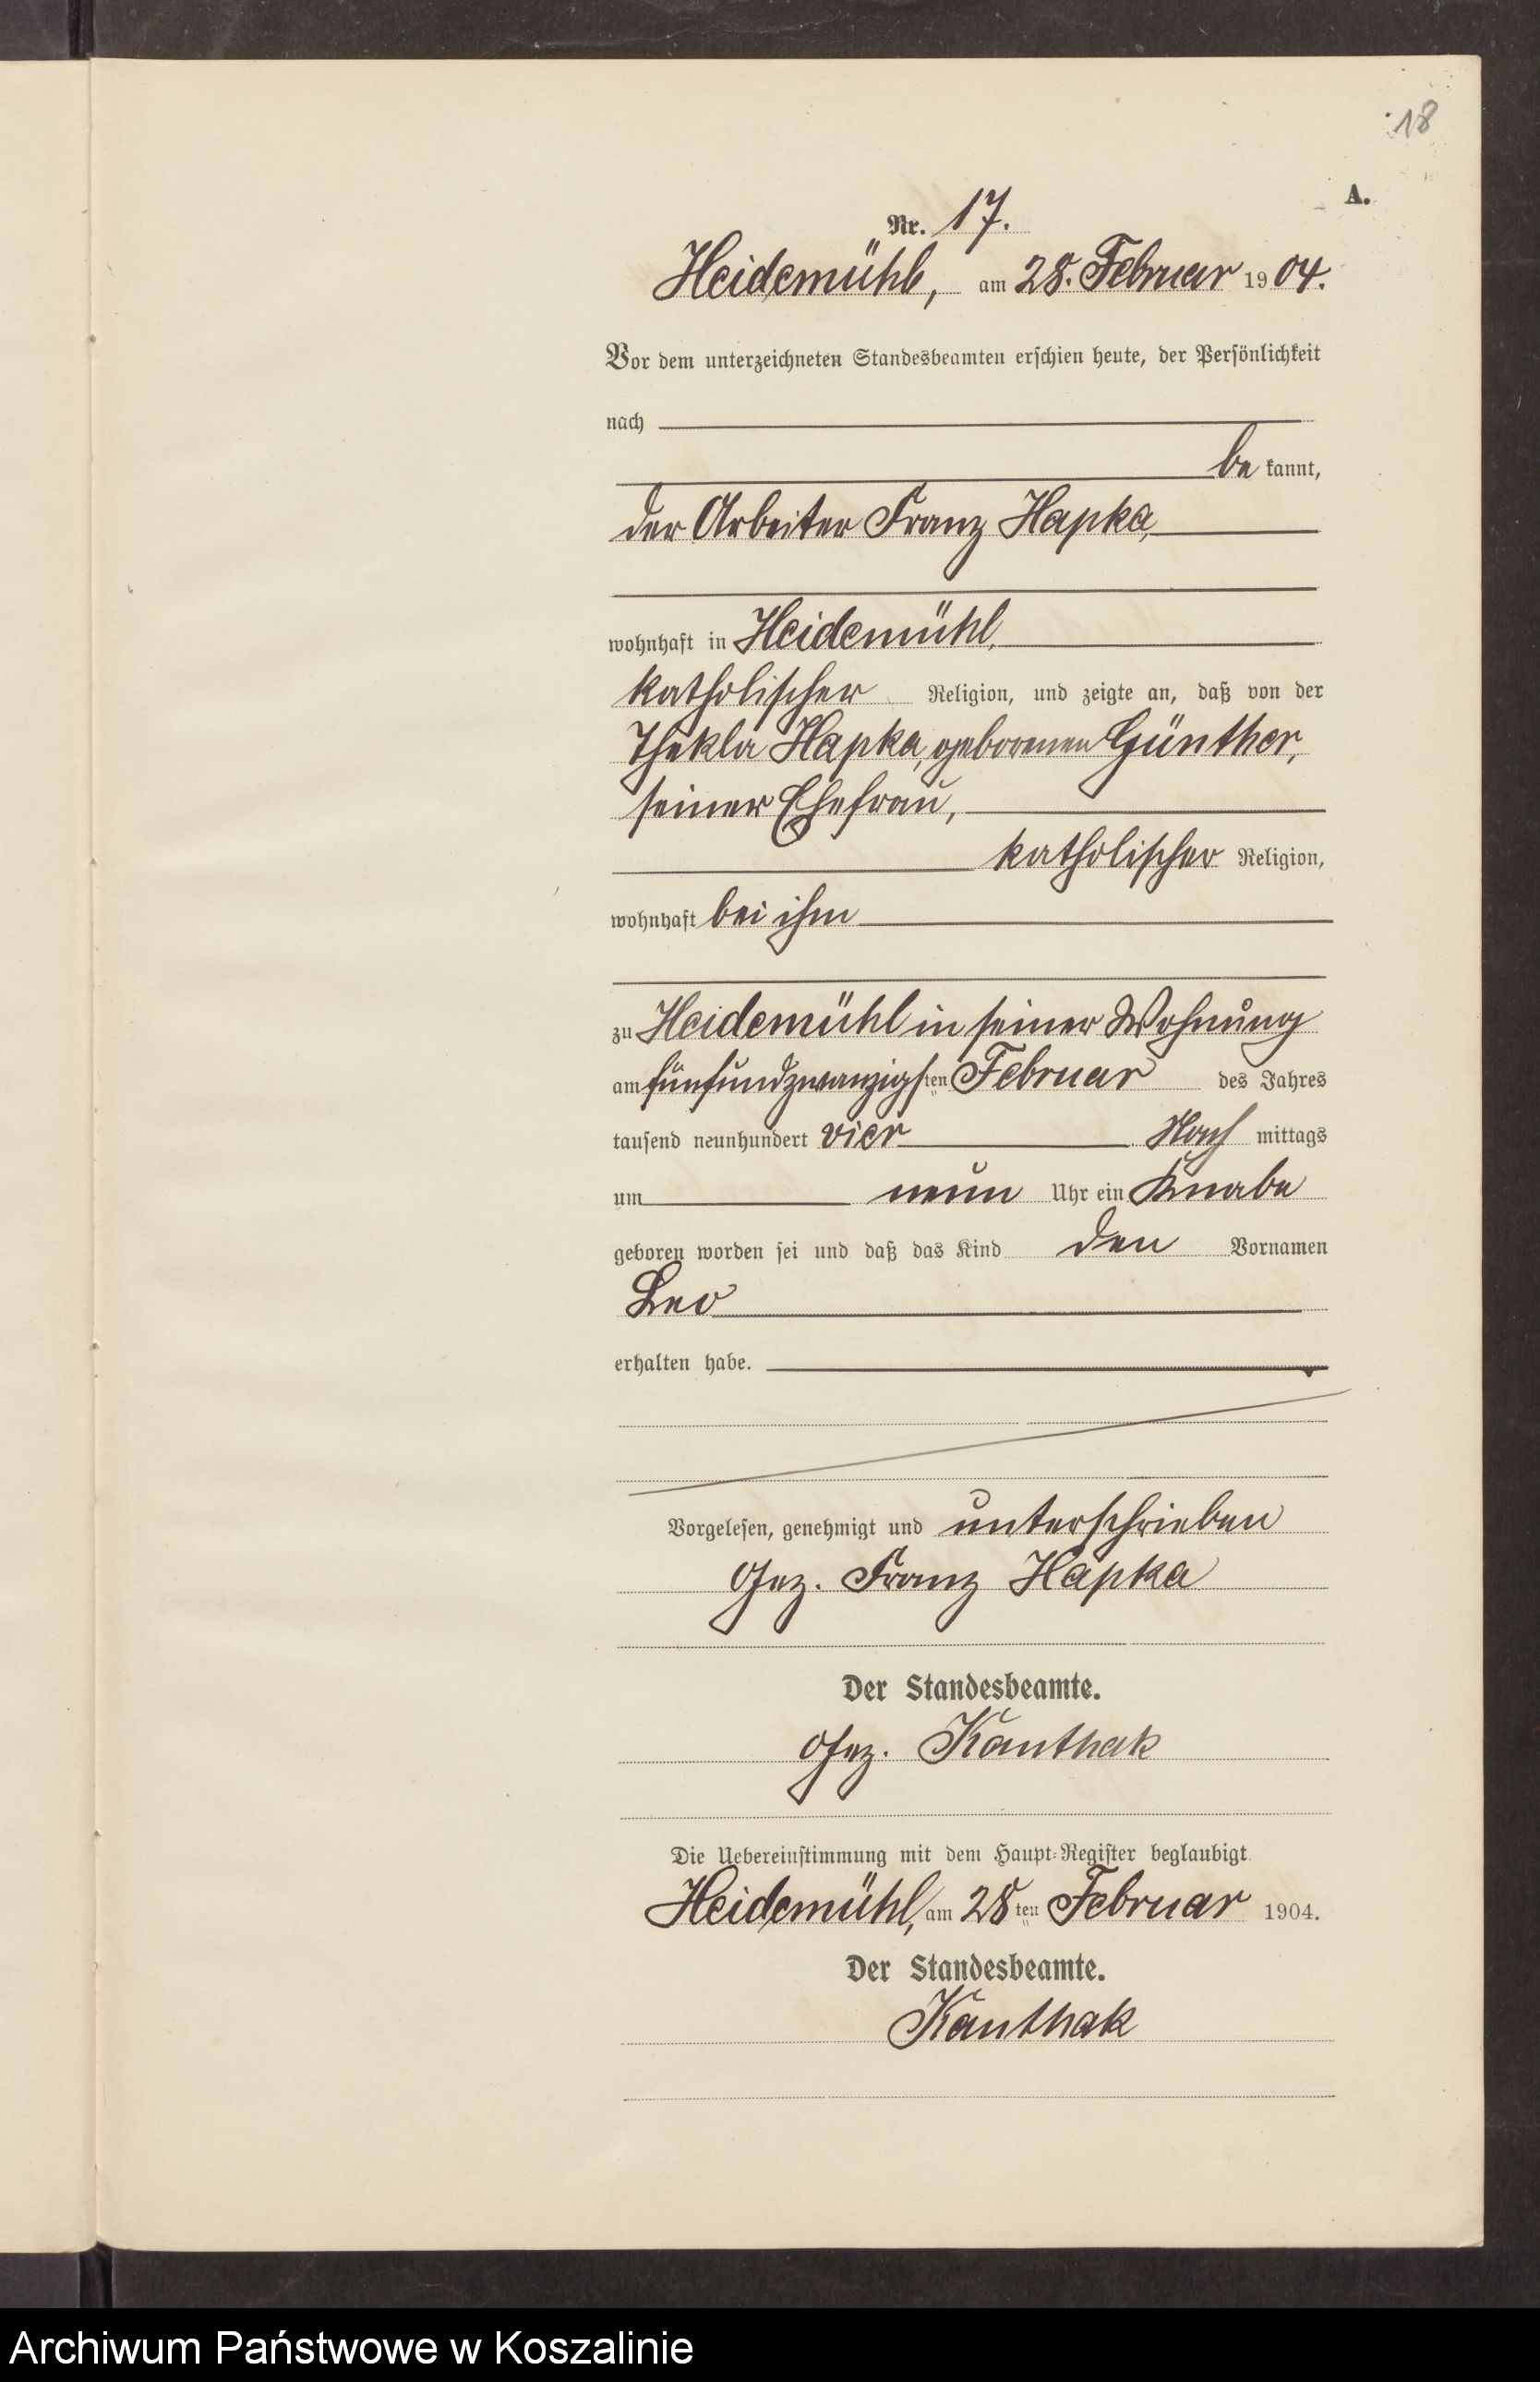 18
A.
Nr. 17.
Heidemühl, am 28. Februar 1904.
Vor dem unterzeichneten Standesbeamten erschien heute, der Persönlichkeit
nach
be kannt,
der Arbeiter Franz Hapka,
wohnhaft in Heidemühl,
katholischer Religion, und zeigte an, daß von der
Thekla Hapka, geborenen Günther,
seiner Ehefrau,
katholischer Religion,
wohnhaft bei ihm
zu Heidemühl in seiner Wohnung
am fünfundzwanzigsten Februar des Jahres
tausend neunhundert vier Nach mittags
um neun Uhr ein Knabe
geboren worden sei und daß das Kind den Vornamen
Leo
erhalten habe.
Vorgelesen, genehmigt und unterschrieben
Gez. Franz Hapka
Der Standesbeamte.
Gez. Kanthak
Die Uebereinstimmung mit dem Haupt-Register beglaubigt
Heidemühl, am 28ten Februar 1904.
Der Standesbeamte.
Kanthak
Archiwum Państwowe w Koszalinie